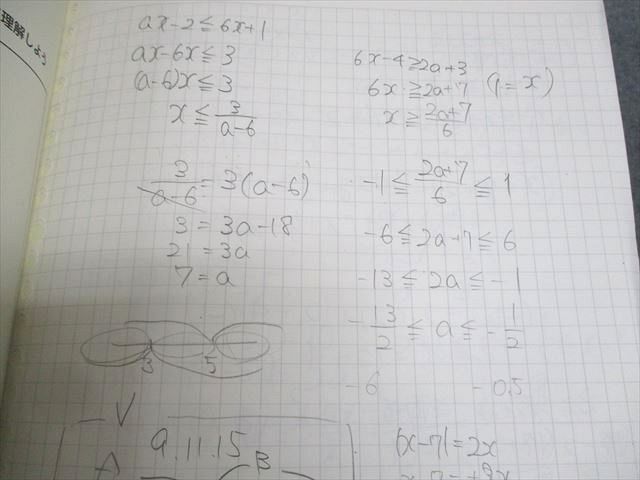 理解しよう
ax-2≦6x+1
ax-6x≦3
(a-6)x≦3
x≦3/(a-6)
3/(a-6)=3(a-6)
3=3a-18
21=3a
7=a
3 5
V
9.11.15
A B
6x-4≧2a+3
6x≧2a+7
x≧(2a+7)/6
-1≦(2a+7)/6≦1
-6≦2a+7≦6
-13≦2a≦-1
-13/2≦a≦-1/2
-6 -0.5
|x-7|=2x